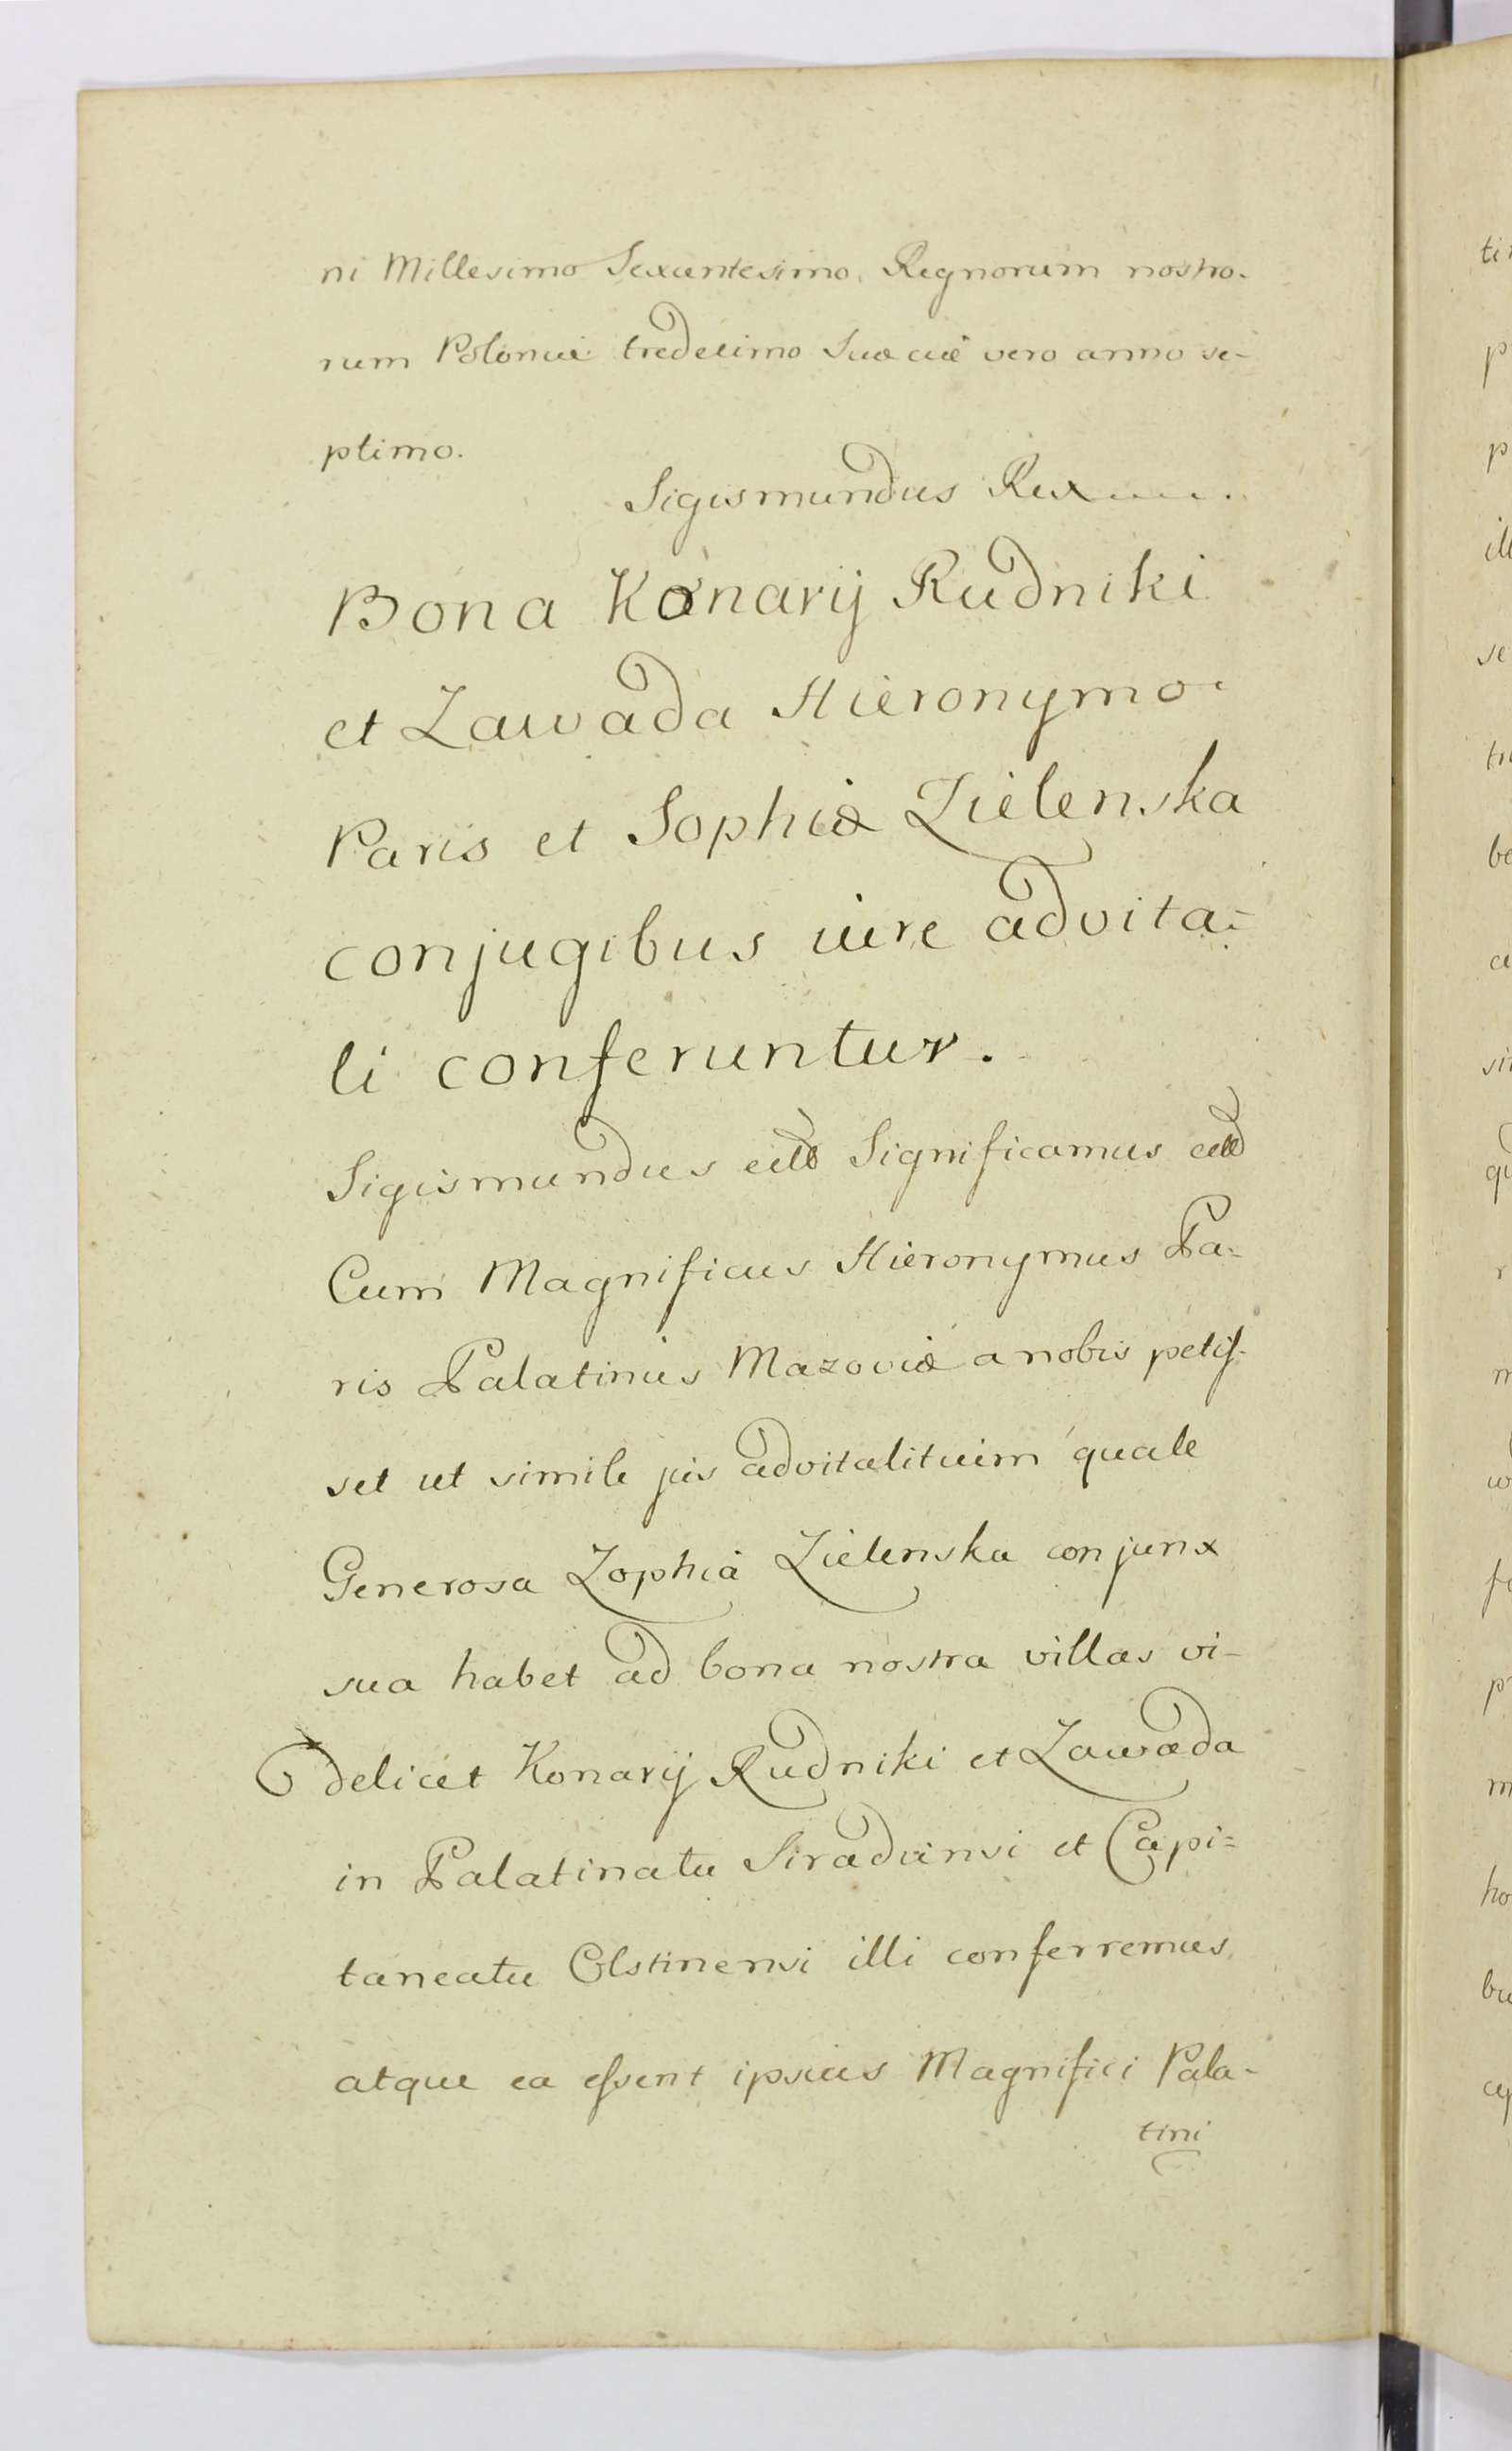 ni Millesimo Sexcentesimo. Regnorum nostro-
rum Poloniæ tredecimo Suæciæ vero anno se-
ptimo.
Sigismundus Rex
Bona Konarÿ Rudniki
et Zawada Hieronymo
Paris et Sophiæ Zielenska
conjugibus iure advita-
li conferuntur.
Sigismundus Significamus
Cum Magnificus Hieronymus Pa-
ris Palatinus Mazoviæ a nobis petis-
set ut simile jus advitalituum quale
Generosa Zophia Zielenska conjunx
sua habet ad bona nostra villas vi-
delicet Konarÿ Rudniki et Zawada
in Palatinatu Siradiensi et Capi-
taneatu Olstinensi illi conferremus
atque ea essent ipsius Magnifici Pala-
tini